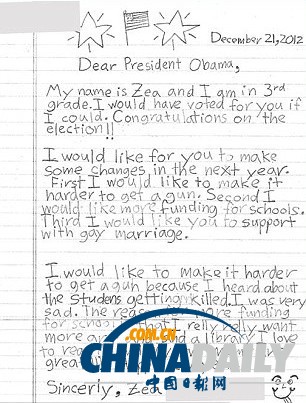 December 21, 2012
Dear President Obama,
My name is Zea and I am in 3rd
grade. I would have voted for you if
I could. Congratulations on the
election!!
I would like for you to make
some changes in the next year.
First I would like to make it
harder to get a gun. Second I
would like more funding for schools.
Third I would like you to support
with gay marriage.
I would like to make it harder
to get a gun because I heard about
the studens getting killed. I was very
sad. The reason
more funding
for schools
that I relly relly want
more
and a library. I love
to rea
great
Sincerly, Zea
.COM.CN
CHINADAILY
中国日报网